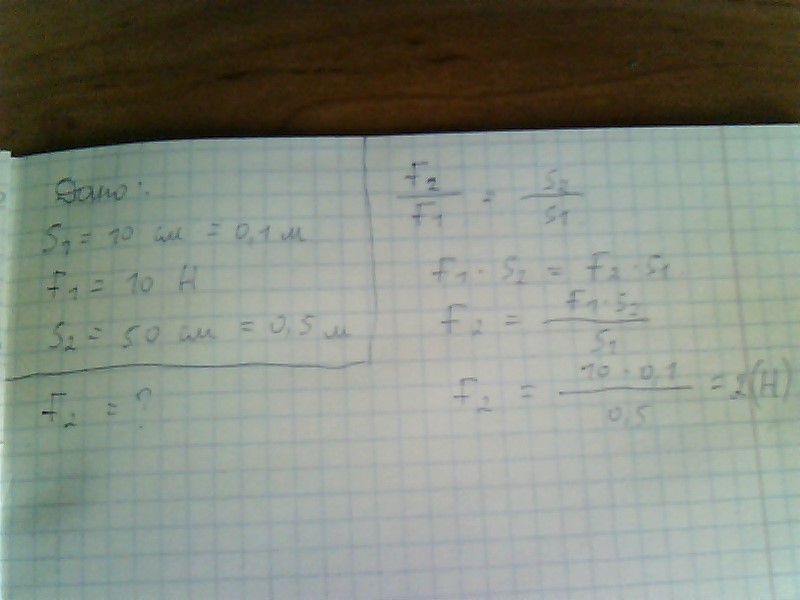 Дано:
S₁ = 10 см = 0,1 м
F₁ = 10 Н
S₂ = 50 см = 0,5 м
F₂ = ?
F₂/F₁ = S₂/S₁
F₁ · S₂ = F₂ · S₁
F₂ = F₁·S₂/S₁
F₂ = 10 · 0,1/0,5 = 2(Н)